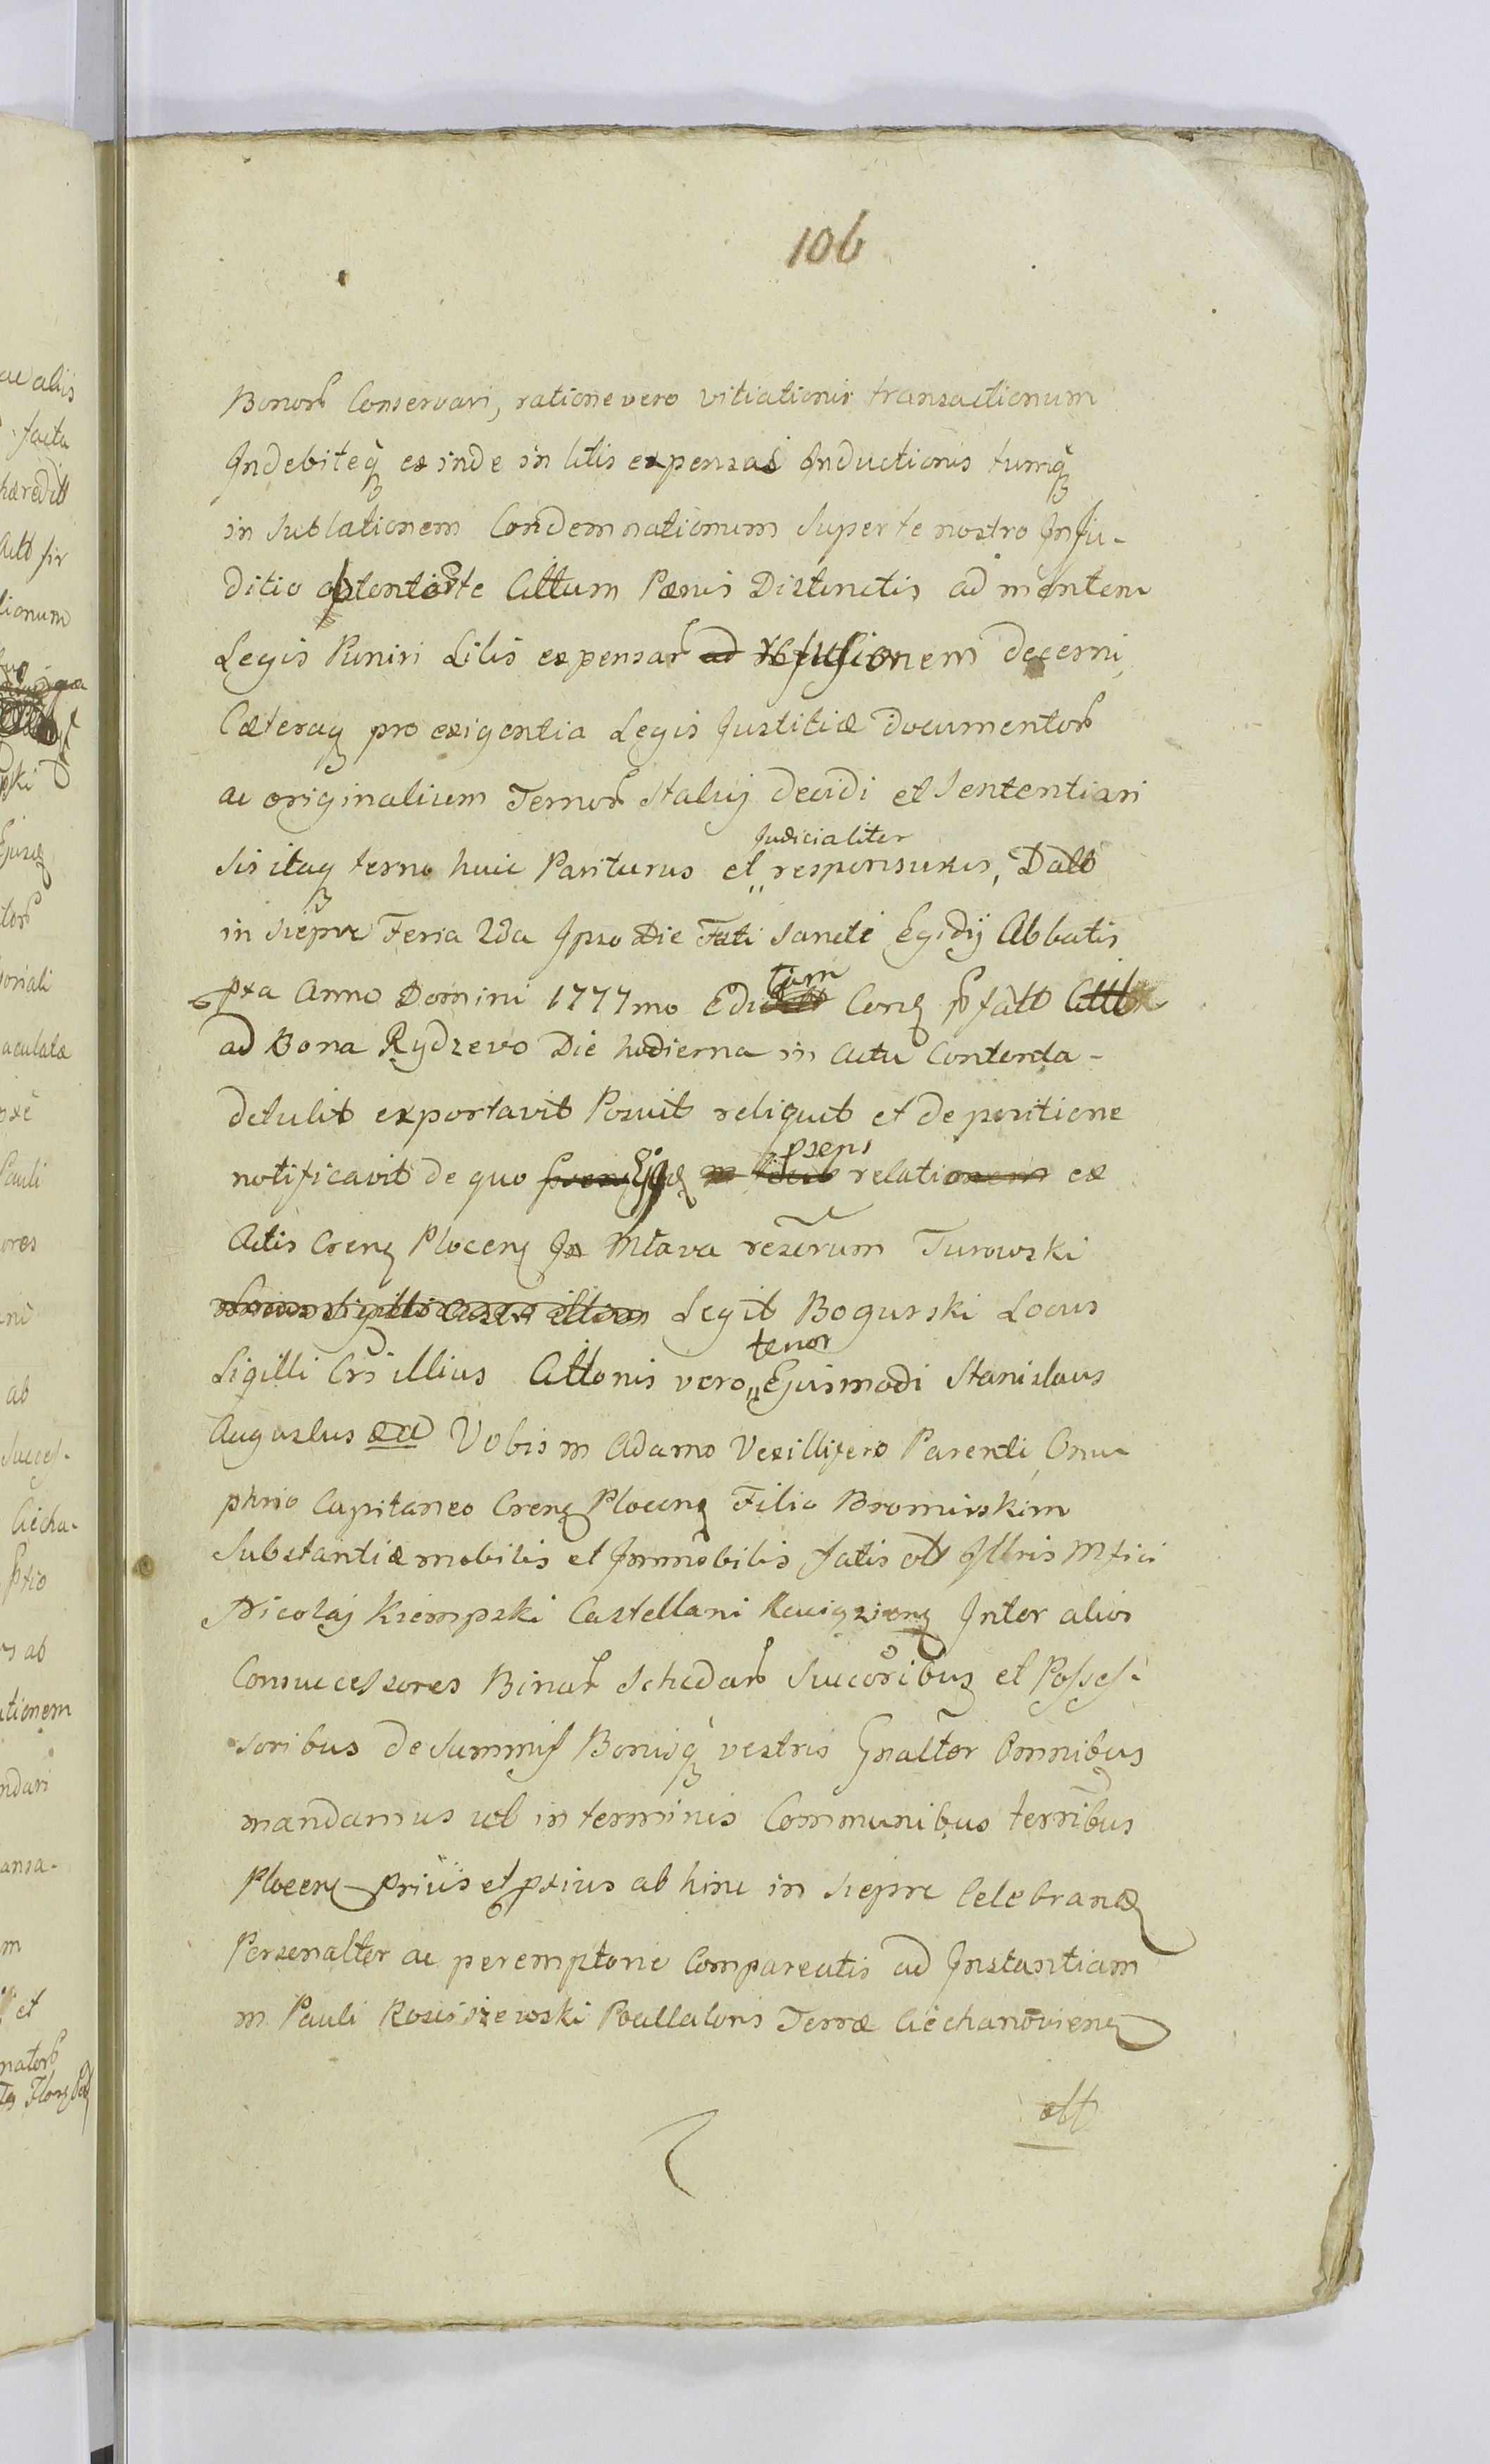 106
Bonor Conservari, ratione vero vitiationis transactionum
Indebiteq ex inde in litis expensas Inductionis tumq
in Sublationem Condemnationum Super te nostro In Ju-
ditio te Attum Pænis Distinctis ad mentem
Legis Puniri Litis expensar ad refusionem decerni,
Cæteraq pro exigentia Legis Justitiæ documentor
ac originalium Termor Statuj decidi et Sententiari
Judicialiter
Sis itaq termo huic Pariturus et responsurus, Datt
in Sieprc Feria 2da Ipso Die Festi Sancti Egidij Abbatis
pxa Anno Domini 1777mo tum Conq
ad Bona Rydzevo Die hodierna in actu Contenta-
detulit exportavit Posuit reliquit et de positione
psens
notificavit de quo relationem ex
Actis Crenq Plocenq In Mlava Turowski
Legit Bogurski Locus
tenor
Sigilli Crs illius Attonis vero Ejusmodi Stanislaus
Augustus Vobis m Adamo Vexillifero Parenti, Onu-
phrio Capitaneo Crenq Plocenq Filio Bromirskim
Substantiæ mobilis et Immobilis fatis olt Illris Mfici
Nicolaj Kiempski Castellani Inter alios
Consuccessores Binar Schedar Succoribus et Posses-
soribus de Summis Bonisq vestris Gnalter Omnibus
mandamus ut in terminis Communibus terribus
Plocenq Priiis et pxius ab hinc in Sieprc Celebrand
Personalter ac peremptorie Compareatis ad Instantiam
m Pauli Rosciszewski Pocillatoris Terræ Ciechanovienq
olt